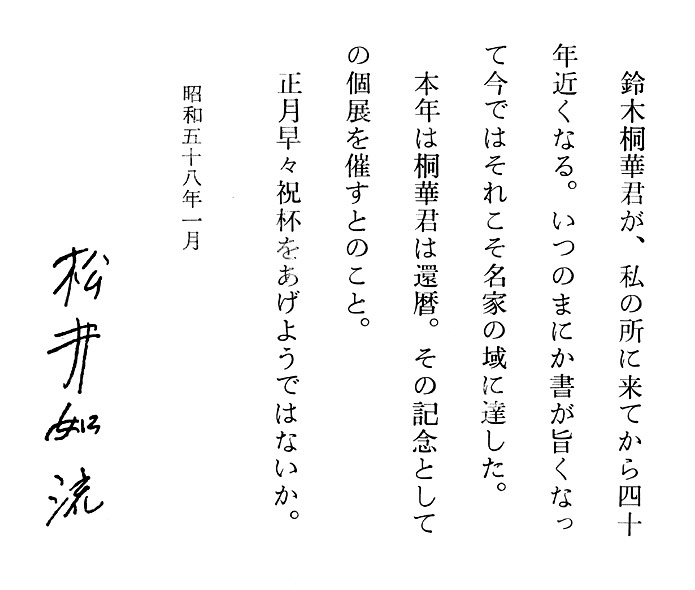 鈴木桐華君が、私の所に来てから四十
年近くなる。いつのまにか書が旨くなっ
て今ではそれこそ名家の域に達した。
本年は桐華君は還暦。その記念として
の個展を催すとのこと。
正月早々祝杯をあげようではないか。
昭和五十八年一月
松井如流